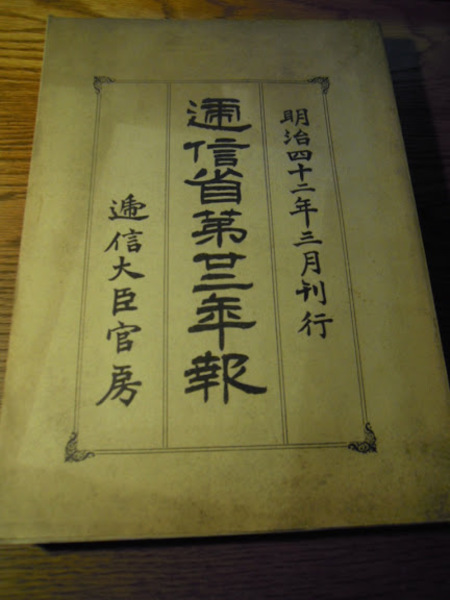 明治四十二年三月刊行
逓信省第廿三年報
逓信大臣官房